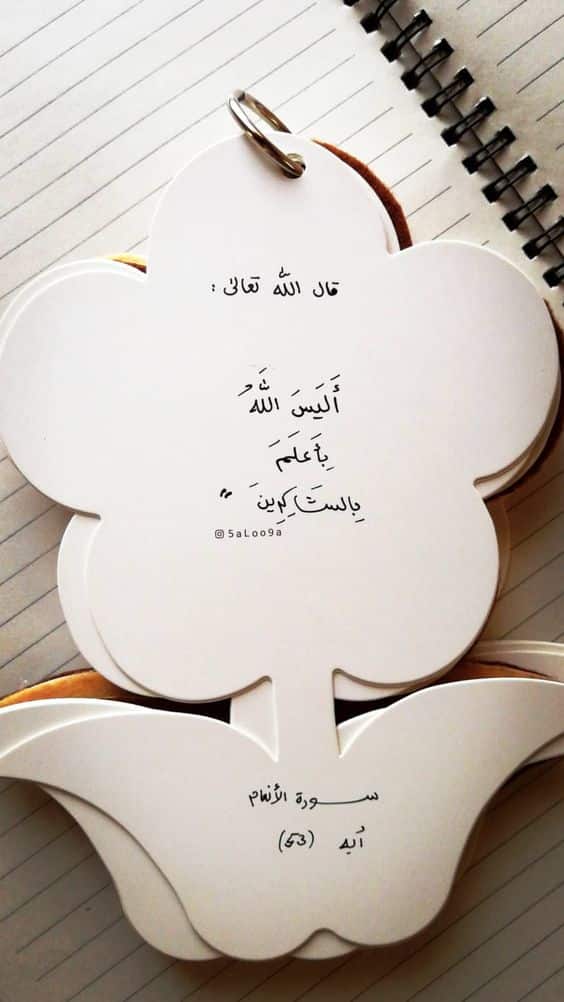 قال الله تعالى :
أَلَيَسَ اللَّهُ
بِأَعلَمَ
بِالشَاكِرِينَ "
5aLoo9a
سورة الأنعام
أيه (53)